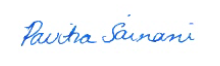 Pavitra Sainani